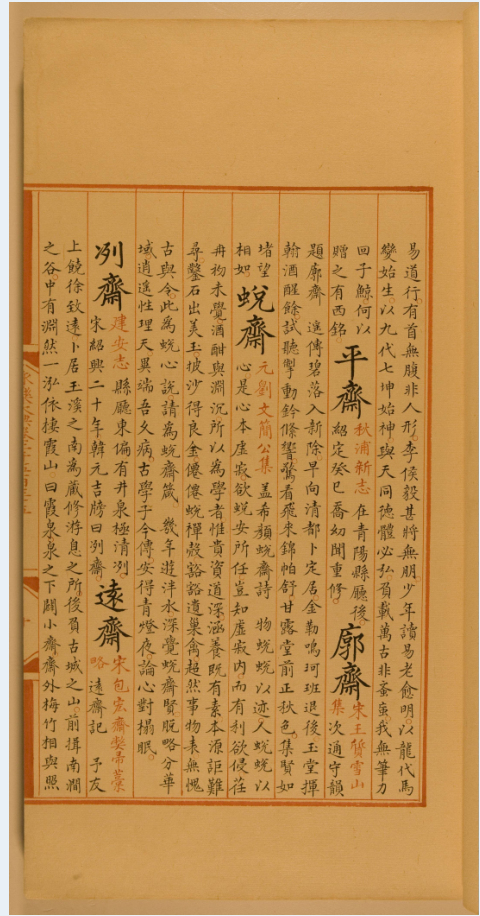 易道行有首無腹非人形李侯毅甚將無朋少年讀易老愈明以龍代馬
變始生以九代七坤始神與天同德體必弘負載萬古非蚉䖟我無筆力
回子鯨何以
贈之有西銘
平齋
秋浦新志 在青陽縣廳後
紹定癸巳喬幼聞重修
廓齋
宋王質雪山
集 次通守韻
題廓齋 遙傳碧落入新除早向清都卜定居金勒鳴珂班退後玉堂揮
翰酒醒餘試聽掣動鈴絛響驚看飛來錦帕舒甘露堂前正秋色集賢如
堵望
相如
蛻齋
元劉文簡公集 盖希穎蛻齋詩 物蛻蛻以迹人蛻蛻以
心是心本虛寂欲蛻安所任豈知虛寂内而有利欲侵荏
冉袀未覺酒酣與淵沉所以為學者惟貴資道深涵養既有素本源詎難
尋鑿石出美玉披沙得良金僊僊蛻禪殼谿谿遺巢禽超然事物表無愧
古與今此為蛻心說請為蛻齋箴 幾年遊泮水深覺蛻齋賢脫略分華
域逍遙性理天異端吾久病古學子今傳安得青燈夜論心對榻眠
冽齋
建安志 縣廳東偏有井泉極清冽
宋紹興二十年韓元吉牓曰冽齋
遠齋
宋包宏齋敝帚藁
略 遠齋記 予友
上饒徐致遠卜居玉溪之南為藏修游息之所後負古城之山前揖南澗
之谷中有淵然一泓依棲霞山曰霞泉泉之下闢小齋齋外梅竹相與照